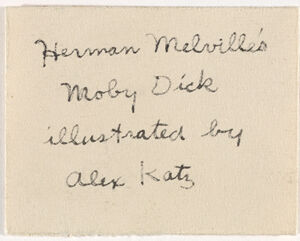 Herman Melville's
Moby Dick
illustrated by
Alex Katz